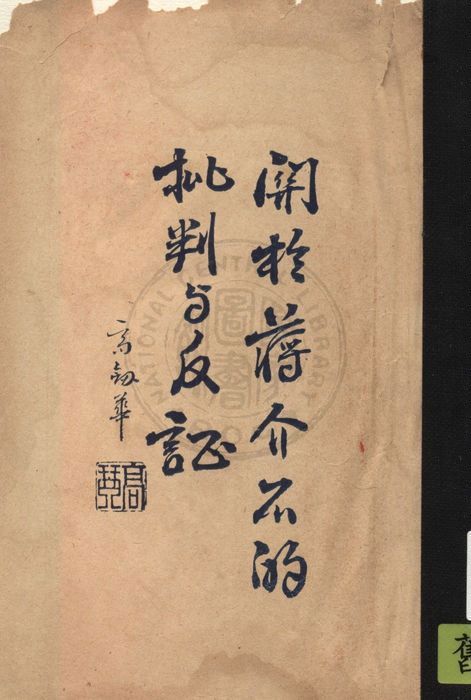 開於蔣介石的
批判与反証
高劍華
NATIONAL CENTRAL LIBRARY
圖書
舊